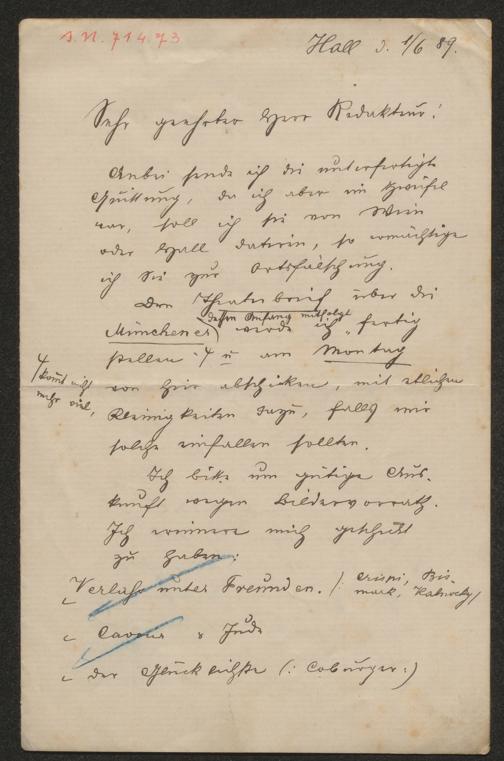 J.N. 71473
Hall d. 1/6 89.
Sehr geehrter Herr Redakteur!
Anbei sende ich die unterfertigte
Quittung, da ich aber im Zweifel
war, soll ich sie von Wien
oder Hall datiren, so ermächtige
ich Sie zur Ortsfälschung.
Den Theaterbrief über die
dessen Anfang mitfolgt
Münchener werde ich fertig
stellen u am Montag
kommt nicht
mehr viel,
von hier abschicken, mit etlichen
Kleinigkeiten dazu, falls mir
solche einfallen sollten.
Ich bitte um gütige Aus-
kunft wegen Bildervorrath.
Ich erinnere mich geschickt
zu haben:
unter Freunden. (: Crispi, Bis-
mark, Kalnocky
Cavour & Jude
der Glücklichste (: Coburger :)